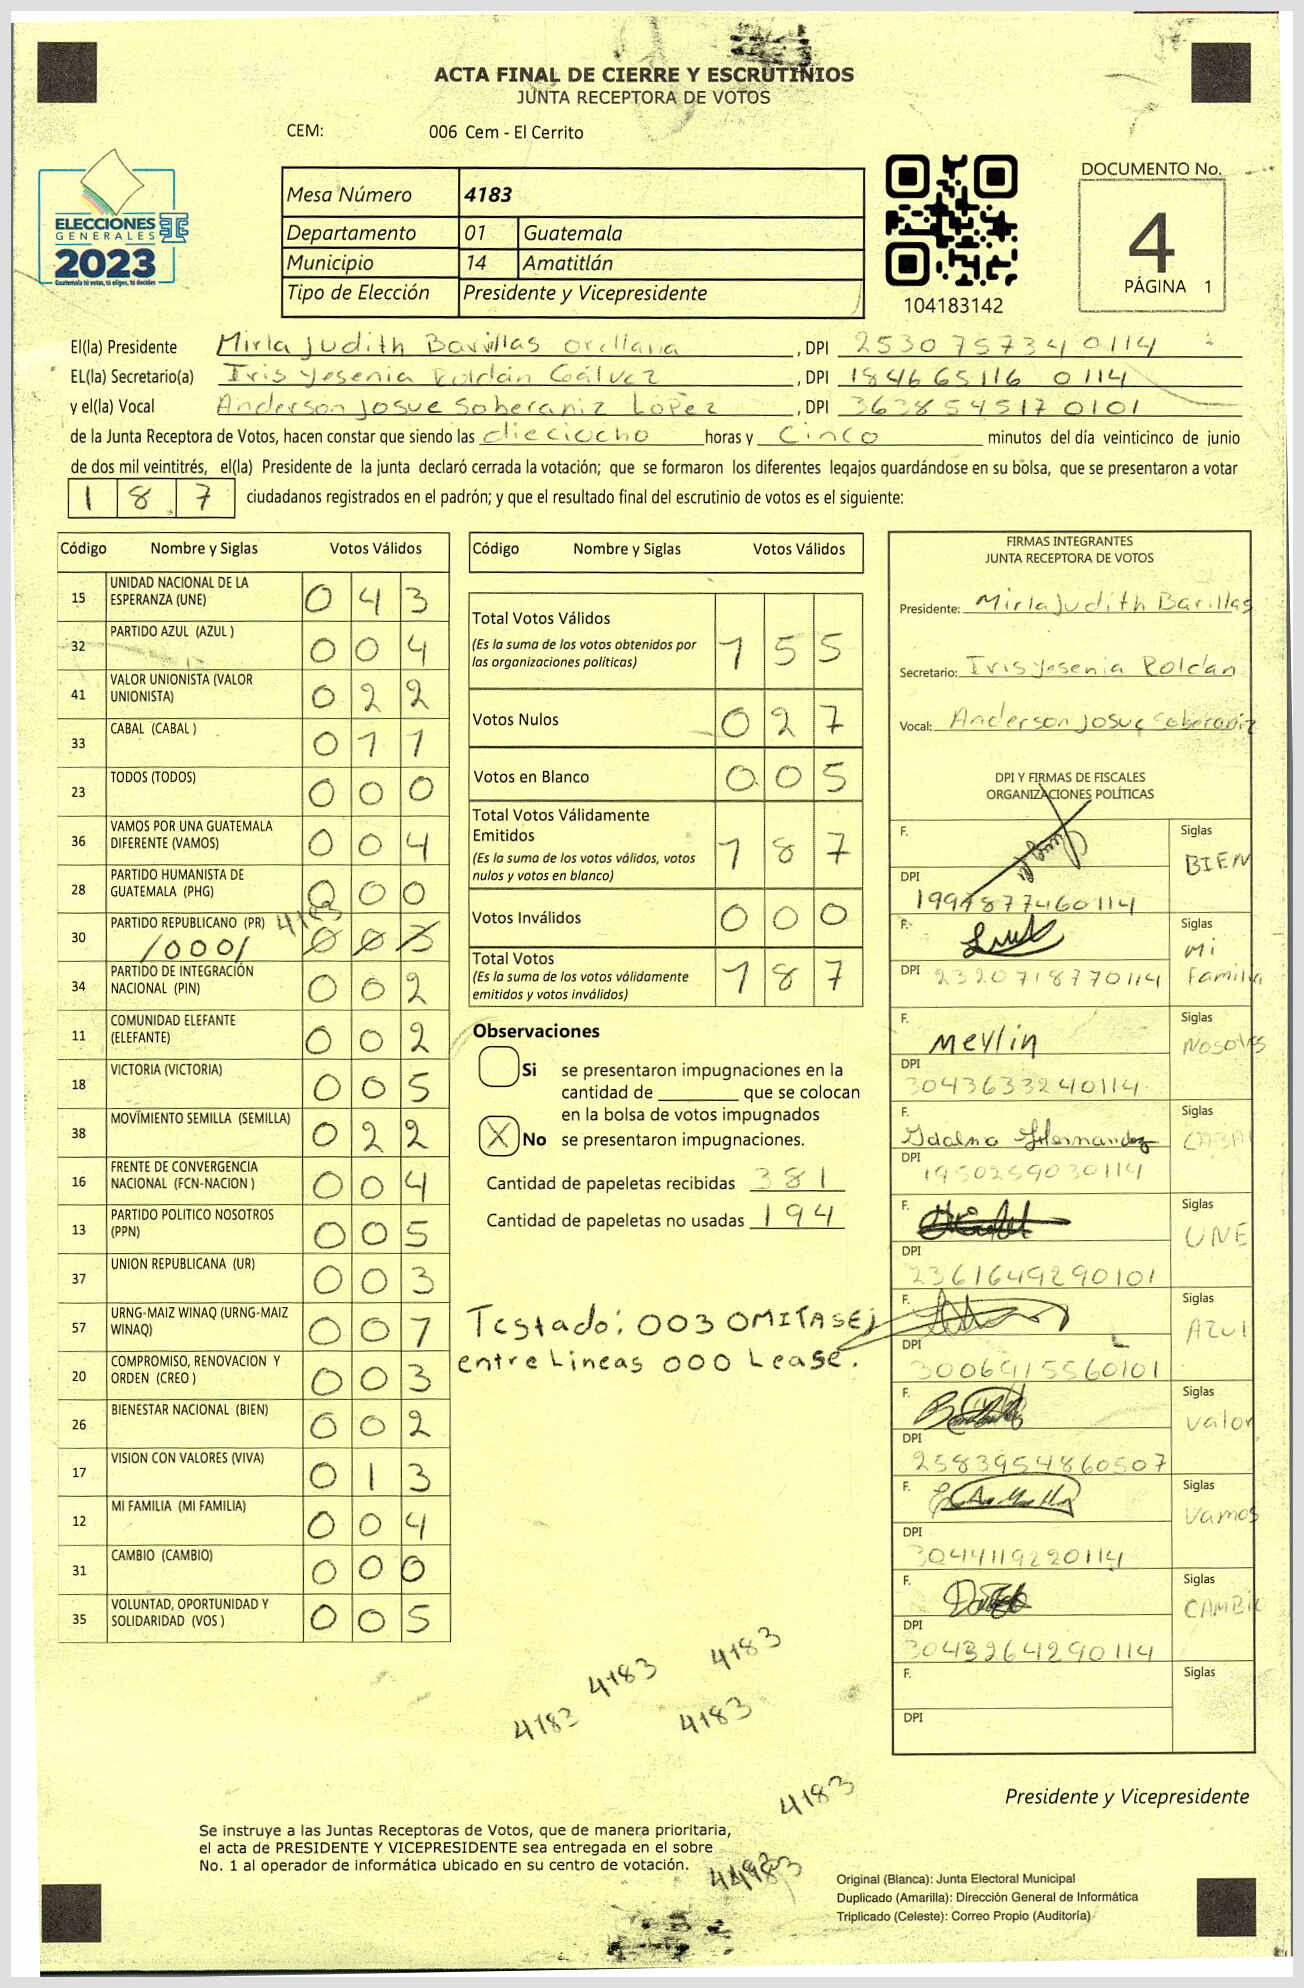 ACTA FINAL DE CIERRE Y ESCRUTINIOS
JUNTA RECEPTORA DE VOTOS
CEM: 006 Cem - El Cerrito
ELECCIONES
GENERALES
2023
Guatemala tú votas, tú eliges, tú decides
Mesa Número 4183
Departamento 01 Guatemala
Municipio 14 Amatitlán
Tipo de Elección Presidente y Vicepresidente
104183142
DOCUMENTO No.
4
PÁGINA 1
El(la) Presidente Mirla Judith Barillas Orellana , DPI 2530 75734 0114
EL(la) Secretario(a) Iris Yesenia Roldán Gálvez , DPI 184665116 0114
y el(la) Vocal Anderson Josue Soberaniz López , DPI 3638545170101
de la Junta Receptora de Votos, hacen constar que siendo las dieciocho horas y Cinco minutos del día veinticinco de junio
de dos mil veintitrés, el(la) Presidente de la junta declaró cerrada la votación; que se formaron los diferentes legajos guardándose en su bolsa, que se presentaron a votar
1 8 7 ciudadanos registrados en el padrón; y que el resultado final del escrutinio de votos es el siguiente:
Código Nombre y Siglas Votos Válidos
15 UNIDAD NACIONAL DE LA ESPERANZA (UNE) 0 4 3
32 PARTIDO AZUL (AZUL ) 0 0 4
41 VALOR UNIONISTA (VALOR UNIONISTA) 0 2 2
33 CABAL (CABAL ) 0 1 1
23 TODOS (TODOS) 0 0 0
36 VAMOS POR UNA GUATEMALA DIFERENTE (VAMOS) 0 0 4
28 PARTIDO HUMANISTA DE GUATEMALA (PHG) 0 0 0
4183
30 PARTIDO REPUBLICANO (PR) /000/ 0 0 3
34 PARTIDO DE INTEGRACIÓN NACIONAL (PIN) 0 0 2
11 COMUNIDAD ELEFANTE (ELEFANTE) 0 0 2
18 VICTORIA (VICTORIA) 0 0 5
38 MOVIMIENTO SEMILLA (SEMILLA) 0 2 2
16 FRENTE DE CONVERGENCIA NACIONAL (FCN-NACION ) 0 0 4
13 PARTIDO POLITICO NOSOTROS (PPN) 0 0 5
37 UNION REPUBLICANA (UR) 0 0 3
57 URNG-MAIZ WINAQ (URNG-MAIZ WINAQ) 0 0 7
20 COMPROMISO, RENOVACION Y ORDEN (CREO ) 0 0 3
26 BIENESTAR NACIONAL (BIEN) 0 0 2
17 VISION CON VALORES (VIVA) 0 1 3
12 MI FAMILIA (MI FAMILIA) 0 0 4
31 CAMBIO (CAMBIO) 0 0 0
35 VOLUNTAD, OPORTUNIDAD Y SOLIDARIDAD (VOS ) 0 0 5
Código Nombre y Siglas Votos Válidos
Total Votos Válidos
(Es la suma de los votos obtenidos por
las organizaciones políticas) 1 5 5
Votos Nulos 0 2 7
Votos en Blanco 0 0 5
Total Votos Válidamente
Emitidos
(Es la suma de los votos válidos, votos
nulos y votos en blanco) 1 8 7
Votos Inválidos 0 0 0
Total Votos
(Es la suma de los votos válidamente
emitidos y votos inválidos) 1 8 7
Observaciones
Si se presentaron impugnaciones en la
cantidad de ________ que se colocan
en la bolsa de votos impugnados
X No se presentaron impugnaciones.
Cantidad de papeletas recibidas 381
Cantidad de papeletas no usadas 194
Testado: 003 OMITASE;
entre Lineas 000 Lease.
FIRMAS INTEGRANTES
JUNTA RECEPTORA DE VOTOS
Presidente: Mirla Judith Barillas
Secretario: Iris Yesenia Roldan
Vocal: Anderson Josue Soberaniz
DPI Y FIRMAS DE FISCALES
ORGANIZACIONES POLÍTICAS
F. Siglas BIEN
DPI 1994877460114
F. Siglas Mi Familia
DPI 2320718770114
F. Mevlin Siglas Nosotros
DPI 3043633240114
F. Idalma Hernandez Siglas CABAL
DPI 1950259030114
F. Siglas UNE
DPI 2361649290101
F. Siglas AZUl
DPI 3006915560101
F. Siglas Valor
DPI 2583954860507
F. Siglas Vamos
DPI 3044119220114
F. Siglas CAMBIO
DPI 3043264290114
F. Siglas
DPI
4183
4183
4183
4183
4183
Presidente y Vicepresidente
Se instruye a las Juntas Receptoras de Votos, que de manera prioritaria,
el acta de PRESIDENTE Y VICEPRESIDENTE sea entregada en el sobre
No. 1 al operador de informática ubicado en su centro de votación.
Original (Blanca): Junta Electoral Municipal
Duplicado (Amarilla): Dirección General de Informática
Triplicado (Celeste): Correo Propio (Auditoría)